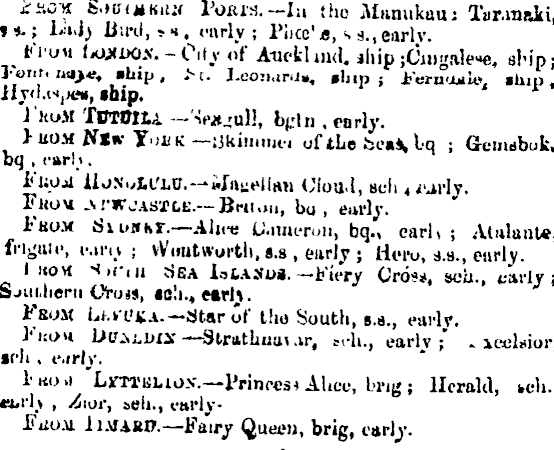 FROM SOUTHERN PORTS.—In the Manukau: Taranaki,
s.s.; Lady Bird, s.s., early; s.s., early.
FROM LONDON.—City of Auckland, ship; Cingalese, ship;
ship; St. Leonards, ship; Ferndale, ship,
Hydaspes, ship.
FROM TUTUILA—Seagull, bgtn, early.
FROM NEW YORK—Skimmer of the Seas, bq; Gemsbok,
bq, early.
FROM HONOLULU.—Magellan Cloud, sch, early.
FROM NEWCASTLE.—Briton, bq, early.
FROM SYDNEY.—Alice Cameron, bq., early; Atalante,
frigate, early; Wentworth, s.s, early; Hero, s.s., early.
FROM SOUTH SEA ISLANDS.—Fiery Cross, sch., early;
Southern Cross, sch., early.
FROM LEVUKA.—Star of the South, s.s., early.
FROM DUNEDIN—Strathnavar, sch., early; Excelsior
sch, early.
FROM LYTTELTON.—Princess Alice, brig; Herald, sch.
early, Zior, sch., early-
FROM TIMARU.—Fairy Queen, brig, early.